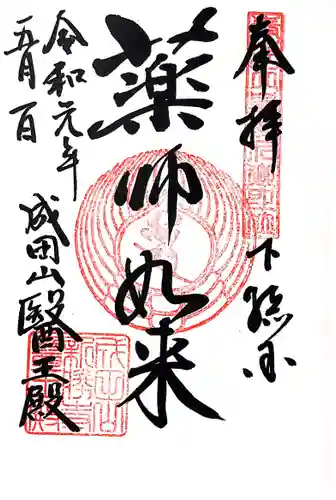 奉拝 下総国
薬師如来
令和元年
五月一日
成田山醫王殿